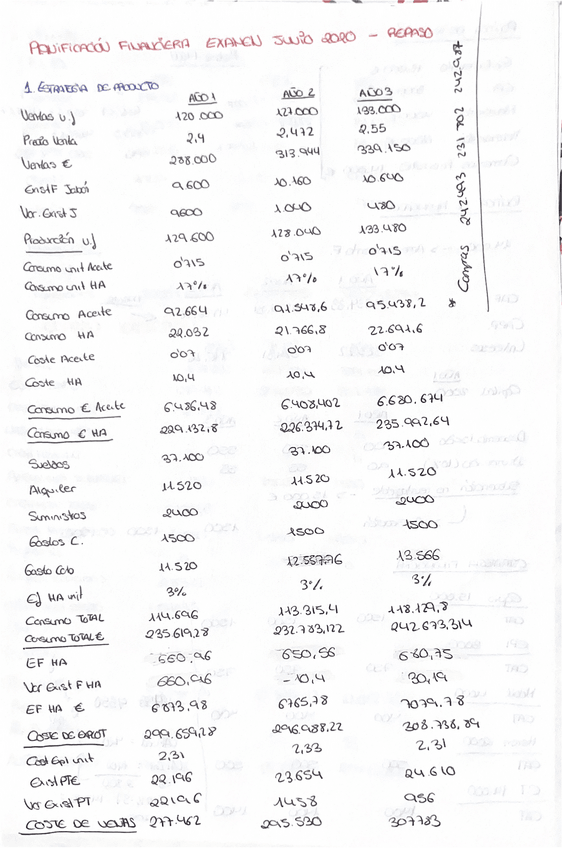 PLANIFICACIÓN FINANCIERA EXAMEN JUNIO 2020 - REPASO
1. ESTRATEGIA DE PRODUCTO
AÑO 1 AÑO 2 AÑO 3
Ventas uf 120.000 127.000 133.000
Precio Venta 2,4 2,472 2.55
Ventas € 288.000 313.944 339.150
Exist F Jabón 9.600 10.160 10.640
Var. Exist J 9600 1040 480
Producción uf 129.600 128.040 133.480
Consumo unit Aceite 0'715 0'715 0'715
Consumo unit HA 17% 17% 17%
Consumo Aceite 92.664 91.548,6 95.438,2
Consumo HA 22.032 21.766,8 22.691,6
Coste Aceite 0'07 0'07 0'07
Coste HA 10,4 10,4 10.4
Consumo € Aceite 6.486,48 6.408,402 6.680.674
Consumo € HA 229.132,8 226.374,72 235.992,64
Sueldos 37.100 37.100 37.100
Alquiler 11.520 11.520 11.520
Suministros 2400 2400 2400
Gastos C. 1500 1500 1500
Gasto 11.520 12.557.76 13.566
Ef HA unit 3% 3% 3%
Consumo TOTAL 114.696 113.315,4 118.129,8
Consumo TOTAL € 235.619,28 232.783,122 242.673,314
EF HA 660,96 650,56 680,75
Var Exist F HA 660,96 -10,4 30,19
EF HA € 6873,98 6765,78 7079,78
COSTE DE PROT 299.659,28 296.988,22 308.738,84
Cost unit 2,31 2,33 2,31
Exist PTE 22.196 23654 24.610
Var Exist PT 22196 1458 956
COSTE DE VENTAS 277.462 295.530 307783
* Compras 242493 231702 242987